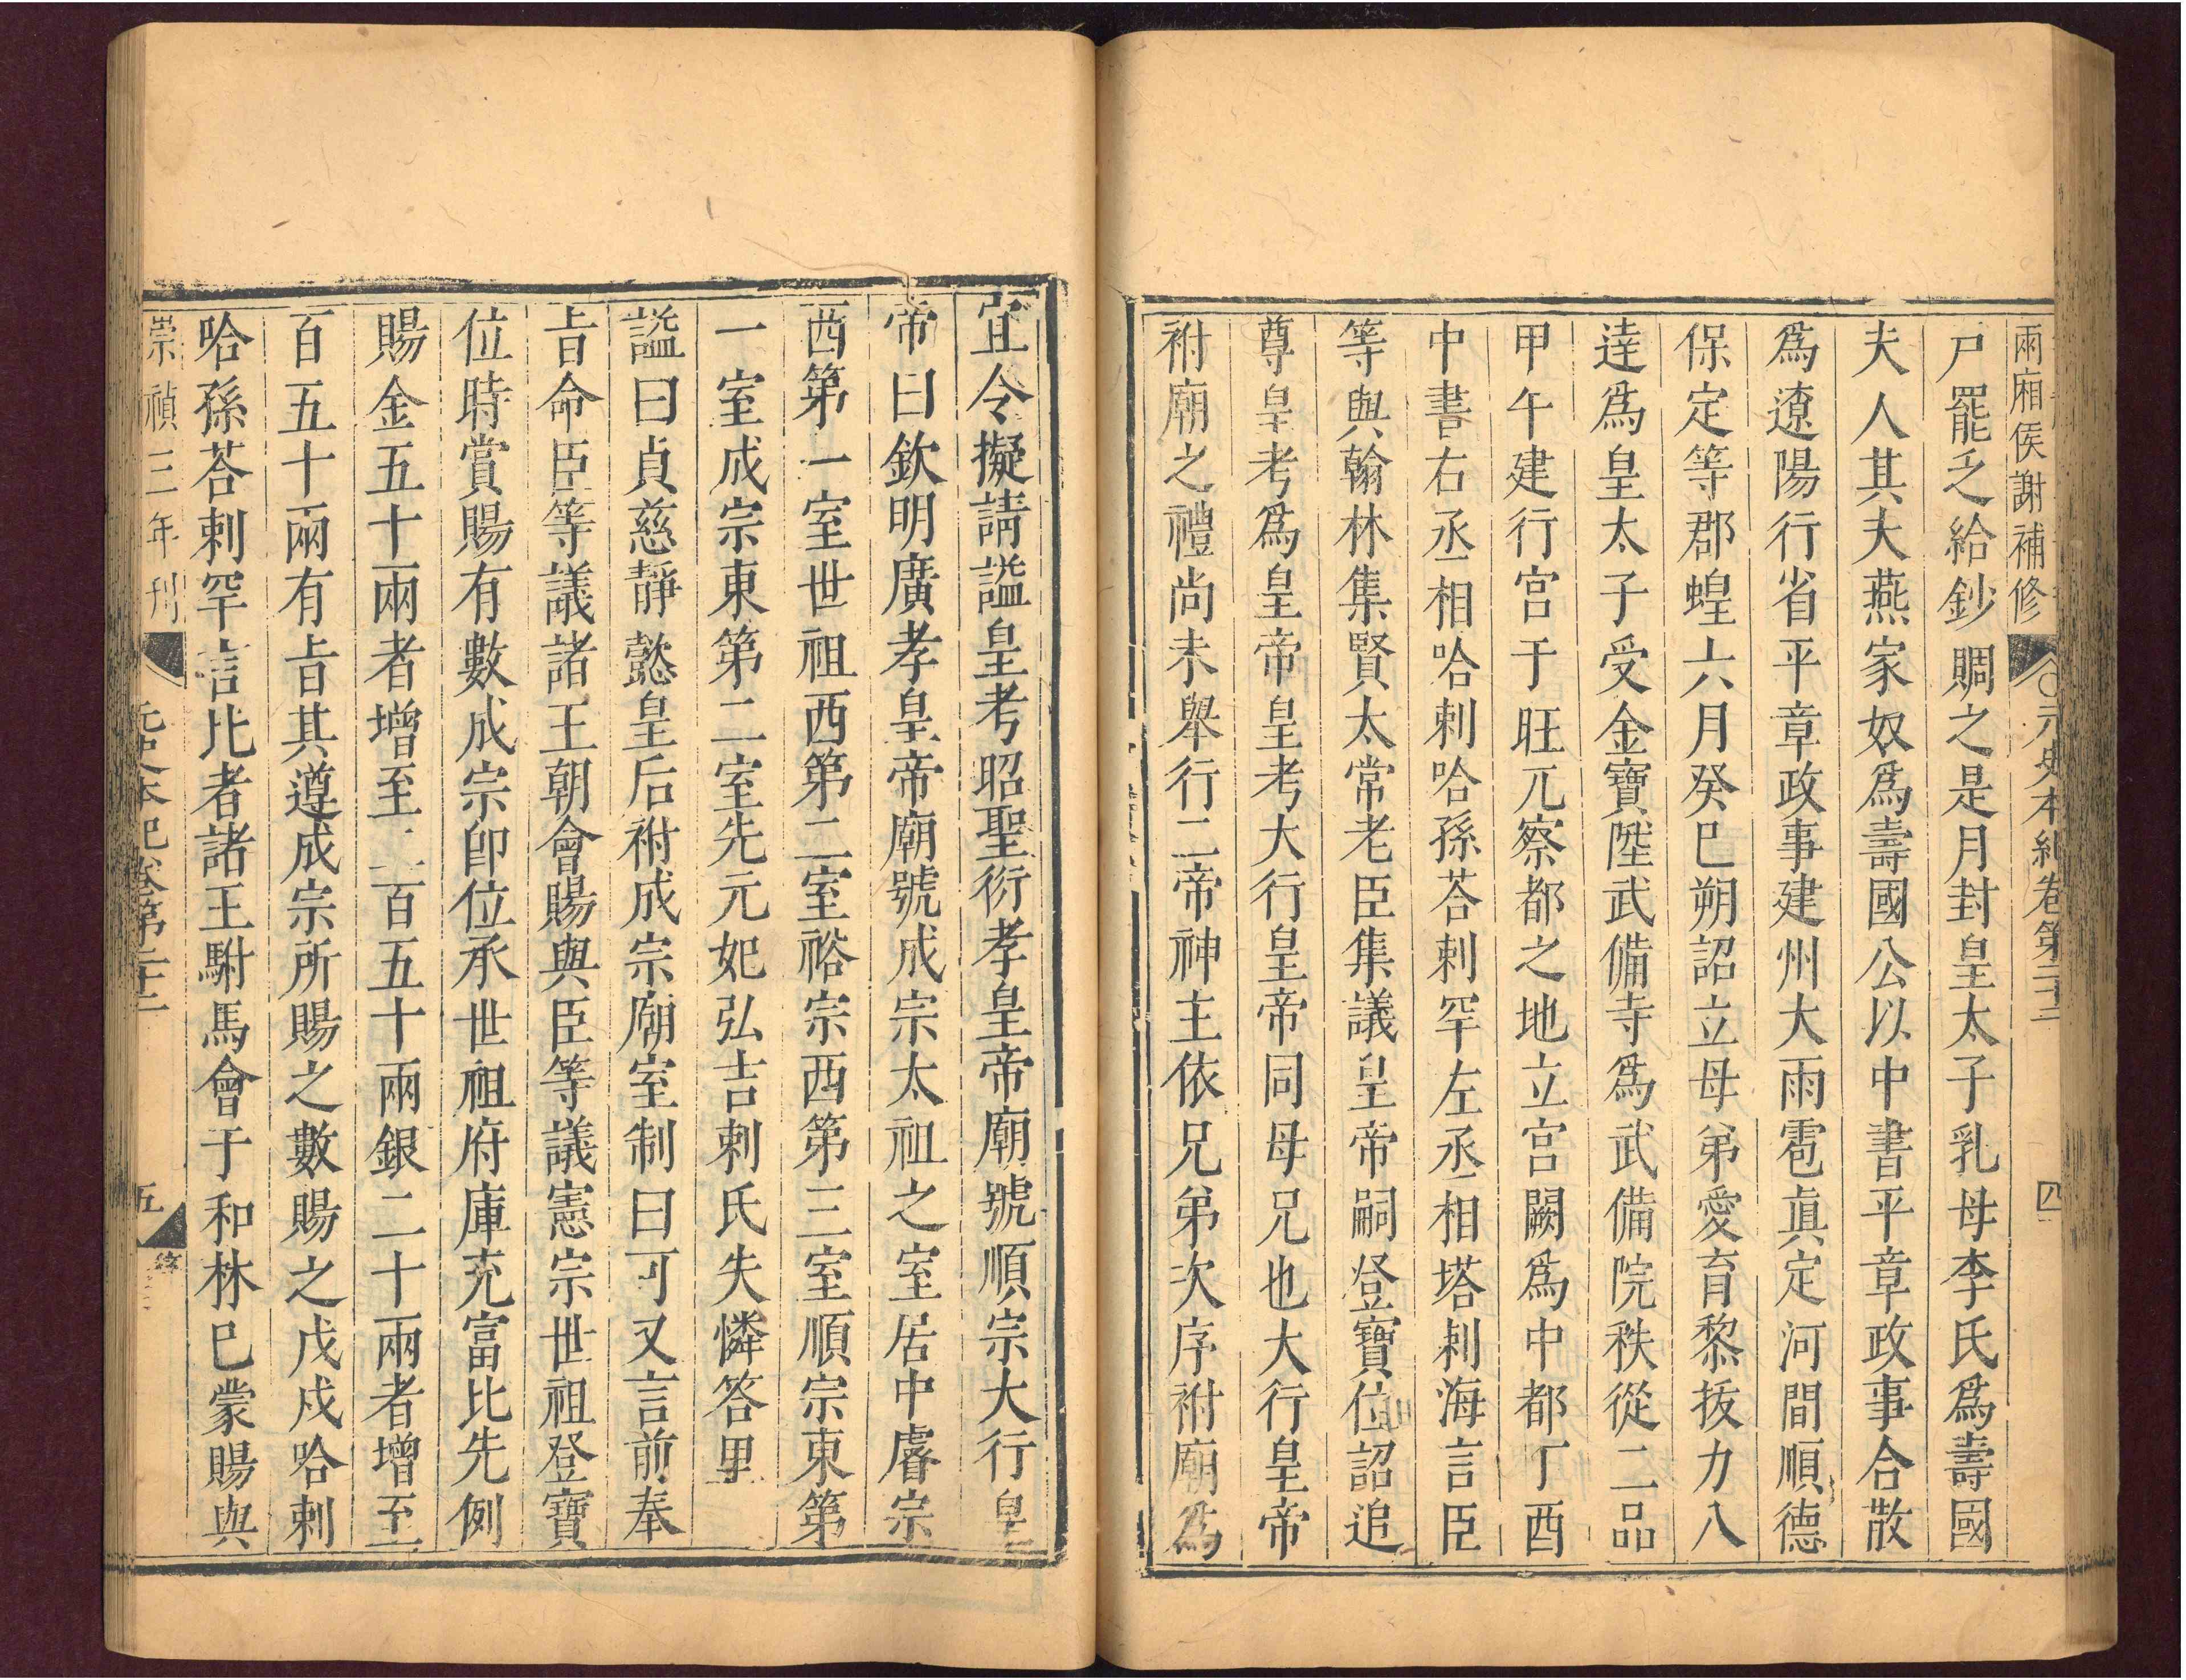 兩廂侯謝補修
元史本紀卷第二十二
四
戸罷乏給鈔賙之是月封皇太子乳母李氏爲壽國
夫人其夫燕家奴爲壽國公以中書平章政事合散
爲遼陽行省平章政事建州大雨雹眞定河間順德
保定等郡蝗六月癸巳朔詔立母弟愛育黎拔力八
達爲皇太子受金寶陞武備寺爲武備院秩從二品
甲午建行宫于旺兀察都之地立宫闕爲中都丁酉
中書右丞相哈剌哈孫荅剌罕左丞相塔剌海言臣
等與翰林集賢太常老臣集議皇帝嗣登寶位詔追
尊皇考爲皇帝皇考大行皇帝同母兄也大行皇帝
祔廟之禮尚未舉行二帝神主依兄弟次序祔廟爲
宜今擬請謚皇考昭聖衍孝皇帝廟號順宗大行皇
帝曰欽明廣孝皇帝廟號成宗太祖之室居中睿宗
西第一室世祖西第二室裕宗西第三室順宗東第
一室成宗東第二室先元妃弘吉剌氏失憐答里
謚曰貞慈靜懿皇后祔成宗廟室制曰可又言前奉
㫖命臣等議諸王朝會賜與臣等議憲宗世祖登寶
位時賞賜有數成宗卽位承世祖府庫充富比先例
賜金五十兩者增至二百五十兩銀二十兩者增至
百五十兩有㫖其遵成宗所賜之數賜之戊戍哈剌
哈孫荅剌罕言比者諸王駙馬會于和林巳蒙賜與
崇禎三年刊
元史本紀卷第二十二
五